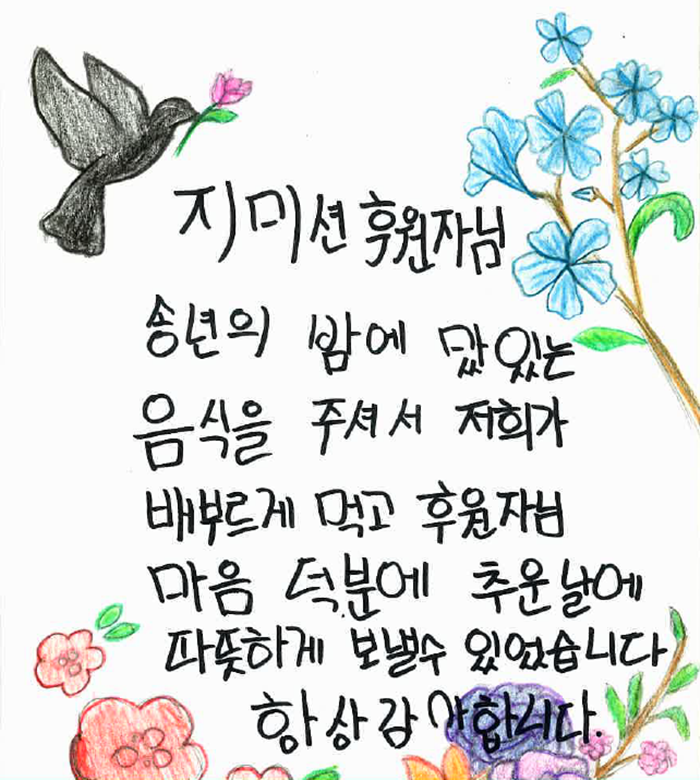 지미션 후원자님
송년의 밤에 맜있는
음식을 주셔서 저희가
배부르게 먹고 후원자님
마음 덕분에 추운날에
따뜻하게 보낼수 있었습니다
항상감사합니다.